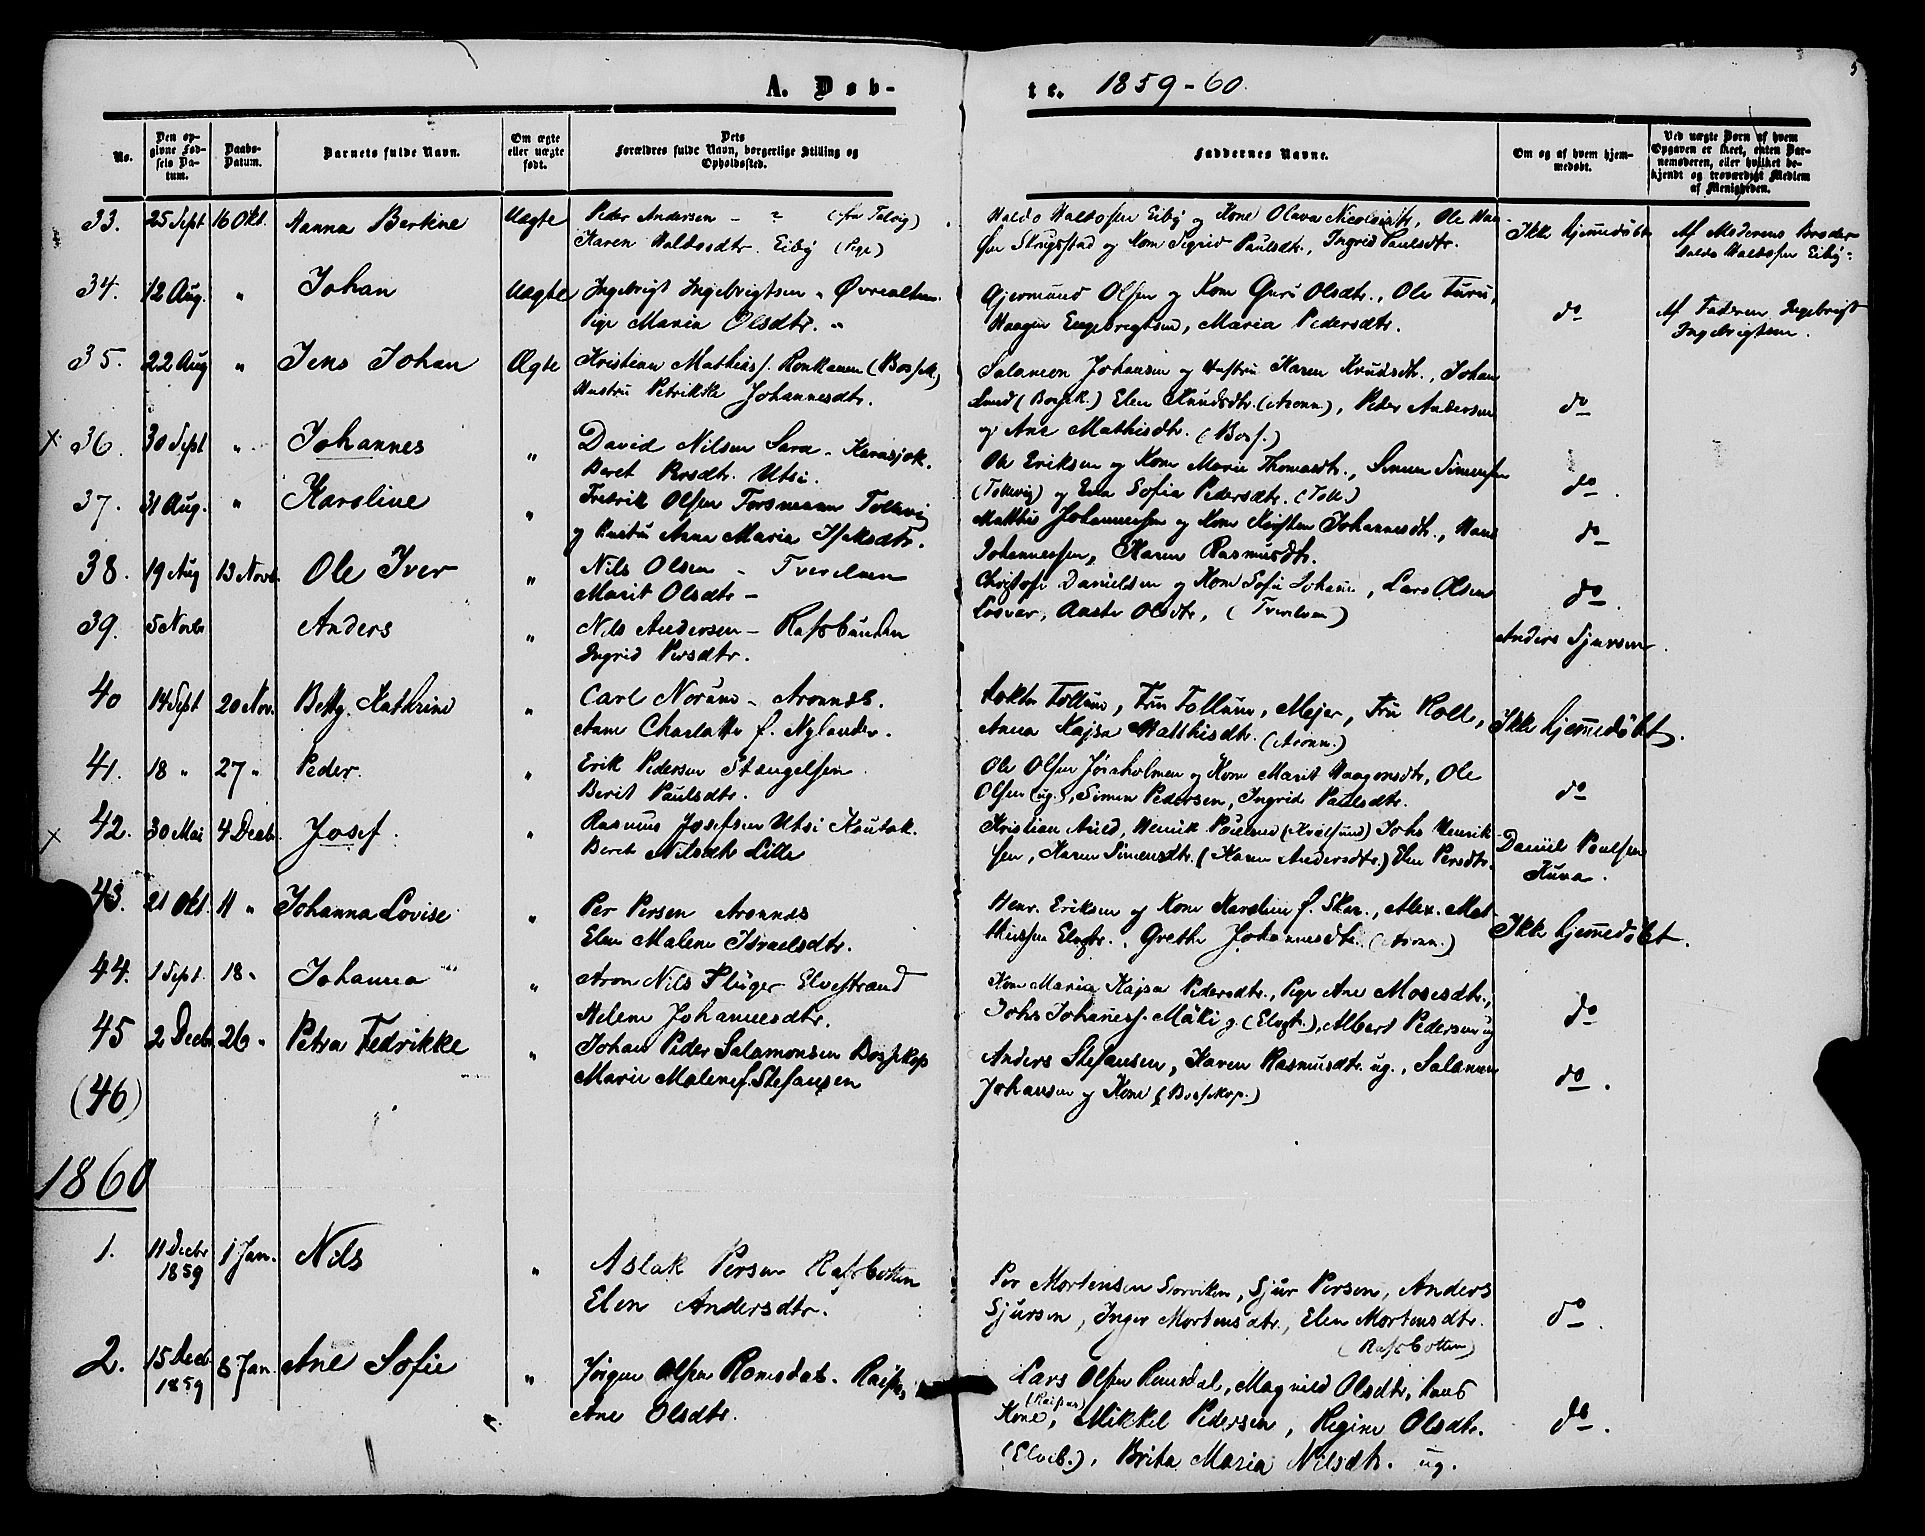 A. Døb-
te. 1859-60.
5
No.
Den opgivne Fødsels Datum.
Daabs-Datum.
Barnets fulde Navn.
Om ægte eller uægte født.
Dets Forældres fulde Navn, borgerlige Stilling og Opholdssted.
Faddernes Navne.
Om og af hvem hjemmedøbt.
Ved uægte Børn af hvem Opgaven er skeet, enten Barnemoderen, eller hvilket bekjendt og troværdigt Medlem af Menigheden.
33. 25 Sept 16 Okt. Hanna Berkine Uægte Peder Andersen - (fra Talvig)
Karen Haldosdtr. Eiby (Pige)
Haldo Haldosen Eiby og Kone Olava, Ole Haa-
gsen og Kone Sigrid Paulsdtr., Ingrid Paulsdtr.
Ikke hjemmedøbt
Af Moderens Broder
Haldo Haldosen Eiby.
34. 12 Aug. " Johan Uægte Ingebrigt Ingebrigtsen " Øvrealten.
Pige Maria Olsdtr. "
Gjermund Olsen og Kone Guri Olsdtr., Ole Furu,
Haagen Engebregtsen, Maria Pedersdtr.
do
Af Faderen Ingebrigt
Ingebrigtsen.
35. 22 Aug " Jens Johan Ægte Kristian Mathiass. Ronkanen (Bossek.)
Hustru Petrikke Johannesdtr.
Salamon Johansen og Hustru Karen Knudsdtr., Johan
Lund (Bossek.) Elen Knudsdtr. (Aronn.), Peder Andersen
og Ane Mathisdtr. (Boss.)
do
x 36. 30 Sept " Johannes " David Nilsen Sara - Karasjok.
Beret Persdtr. Utsi.
Ole Eriksen og Kone Marie Thomasdtr., Simon Simonsen
(Tollevig) og Eva Sofia Pedersdtr. (Tolle.)
do.
37. 31 Aug. " Karoline " Fredrik Olsen Forsmann Tollevig
og Hustru Anna Maria Isaksdtr.
Matthis Johannessen og Kone Kirsten Johannesdtr., Hans
Johannessen, Karen Rasmusdtr.
do
38. 19 Aug 13 Novb. Ole Iver " Nils Olsen - Tverelven
Marit Olsdtr -
Christofer Danielsen og Kone Sofie Johanne, Lars Olsen
Losvar, Olsdtr, (Tverelven)
do.
39. 5 Novbr Anders " Nils Andersen - Rafsbunden
Ingrid Persdtr.
Anders Sjursen.
40 14 Sept 20 Nov. Betty Kathrine " Carl Norum - Aronnes.
Anne Charlotte f. Nylander.
Follum, Fru Follum, Mejer, Fru Rolle,
Anna Kajsa Matthisdtr. (Aronn.)
Ikke hjemmedøbt.
41. 18 " 27 " Peder. " Erik Pedersen Stængelsen.
Berit Paulsdtr.
Ole Olsen Jøraholmen og Kone Marit Haagensdtr, Ole
Olsen (ug.), Simen Pedersen, Ingrid Paulsdtr.
do
x 42. 30 Mai 4 Decbr. Josef. " Rasmus Josefsen Utsi Koutok.
Beret Nilsdtr Lille
Kristian Auld, Henrik Poulsen (Kvalsund) Johs Henrik-
sen, Karen Simensdtr. (Karen Andersdtr.) Elen Persdtr.
Daniel Poulsen
Kuna.
43. 21 Okt. 11 " Johanna Lovise " Per Persen Aronnes
Elen Malene Israelsdtr.
Henr. Eriksen og Kone Karoline f. Skar., Alex. Mat-
thissen Elvgtr., Grethe Johannesdtr. (Aronn.)
Ikke hjemmedøbt.
44. 1 Sept. 18 " Johanna " Aron Nils Plüger Elvestrand
Helene Johannesdtr.
Kone Maria Kajsa Pedersdtr., Pige Ane Mosesdtr.,
Johs Johaness. Mäki g. (Elvgt.), Albert Pedersen ug
do
45 2 Decbr 26 " Petra Fedrikke " Johan Peder Salamonsen Bossekop
Marie Malene f. Stefansen
Anders Stefansen, Karen Rasmusdtr. ug., Salamon
Johansen og Kone (Bossekop.)
do.
(46)
1860
1. 11 Decbr 1859 1 Jan. Nils " Aslak Persen Rafsbotten
Elen Andersdtr.
Per Mortensen Storviken, Sjur Persen, Anders
Sjursen, Inger Mortensdtr., Elen Mortensdtr.
(Rafsbotten)
do.
2. 15 Decbr 1859 8 Jan. Ane Sofie " Jørgen Olsen Romsdal. Raipas
Ane Olsdtr.
Lars Olsen Romsdal, Magnild Olsdtr, hans
Kone, (Raipas) Mikkel Pedersen, Regine Olsdtr.
(Elveb.), Brita Maria Nilsdtr. ug.
do.